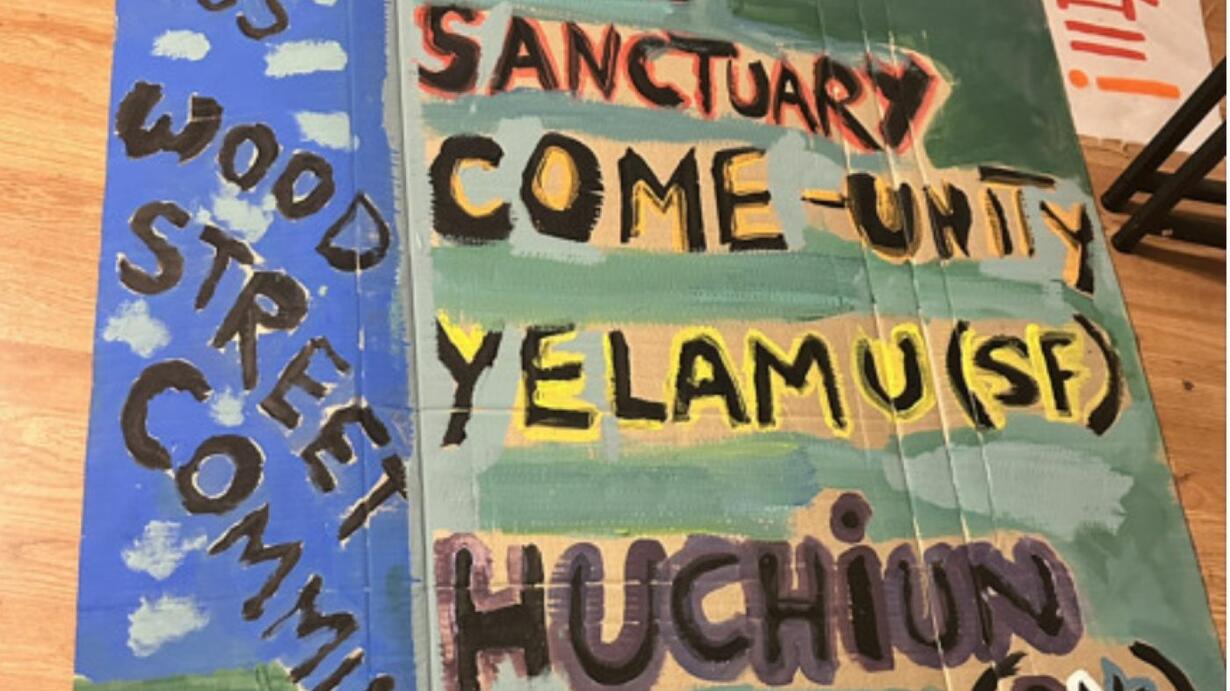 WOOD
STREET
SANCTUARY
COME-UNITY
YELAMU (SF)
HUCHiUN